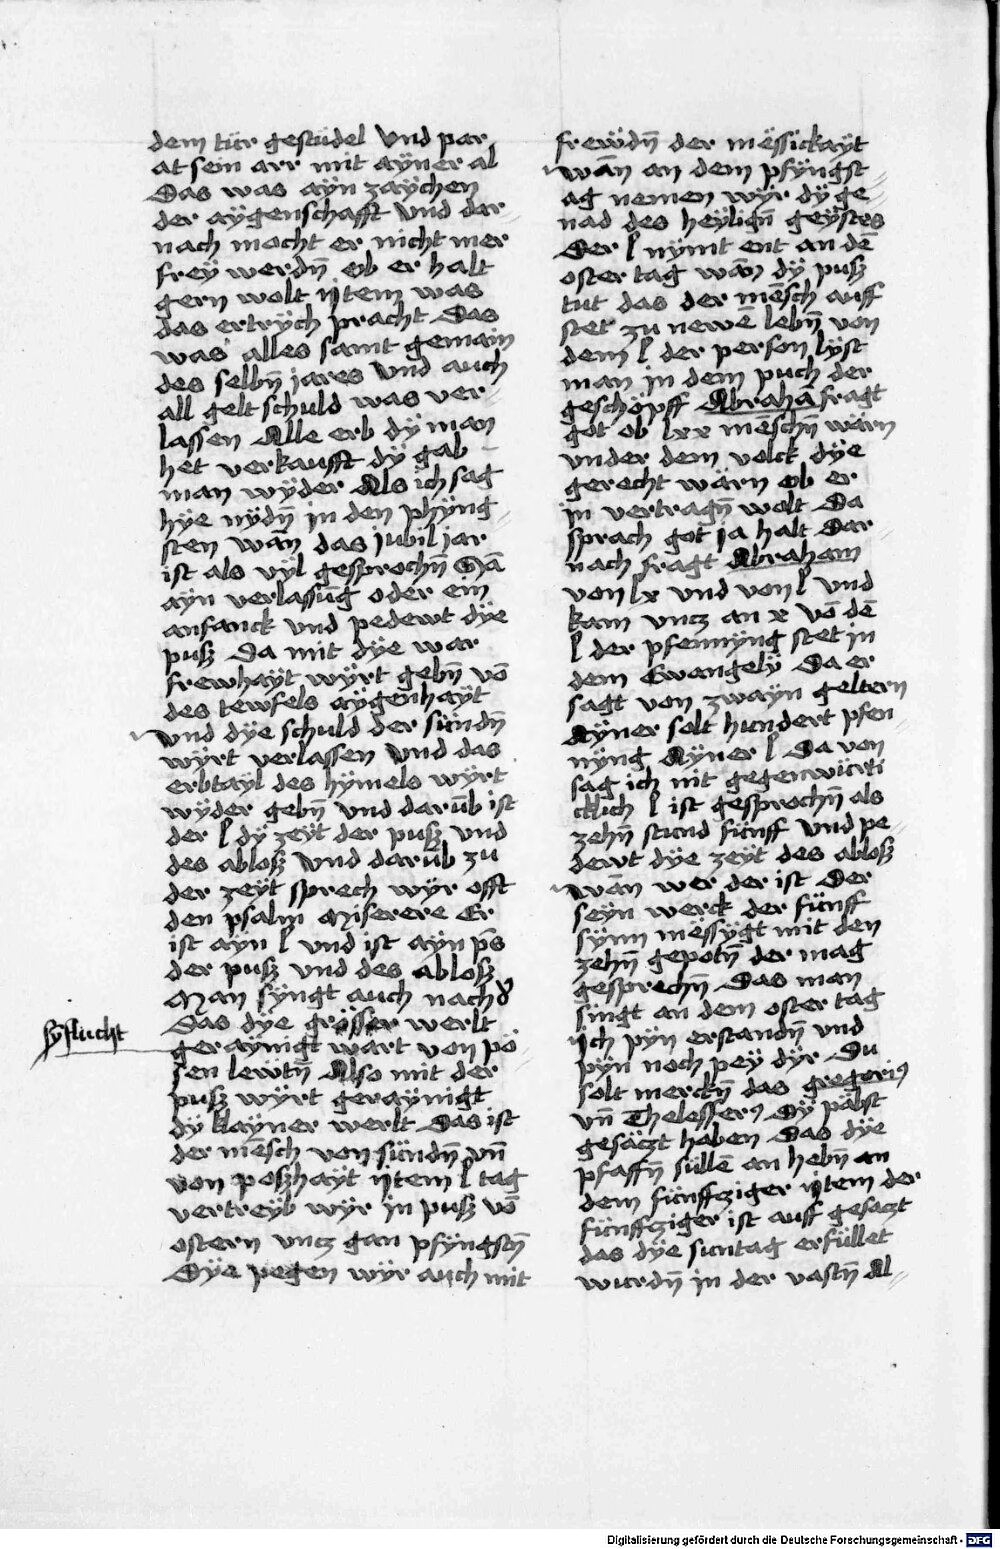 dem tür gestüdel Vnd par
at sein arr mit aÿner al
Das was aÿn zaÿchen
der aÿgenschafft Vnd dar⸗
nach mocht er nicht mer
freÿ werdn̄ ob er halt
gern wolt ıjtem was
das ertrÿch pracht Das
was alles samt gemain
des selbn̄ jares Vnd auch
all gelt schuld was ver⸗
lassen Alle erb dÿ man
het verkaufft dÿ gab
man wÿder Als ich sag
hÿe nÿdn̄ in den phÿng⸗
sten wān das jubiljar
ist als vÿl gesprochn̄ Sā
aÿn verlassūg oder ein
anfanck vnd pedewt dÿe
pusz Da mit dÿe war
frewhaÿt wÿrt gebn̄ vō
des tewfels aÿgenhaÿt
Vnd dÿe schuld der sündn̄
wÿrt verlassen Vnd das
erbtaÿl des hÿmels wÿrt
wÿder gebn̄ Vnd darūb ist
der l dÿ zeÿt der pusz Vnd
des ablosz Vnd darūb zu
der zeÿt sprech wÿr offt
den psalm Miserere Er
ist aÿn l vnd ist aÿn p̄s
der pusz vnd des ablosz
Man sÿngt auch nach d
Das dÿe grösser werlt
geraÿnigt wart von pö⸗
sen lewtn̄ Also mit der
pusz wÿrt geraÿnigt
dÿ klaÿner werlt Das ist
der mēsch von sündn̄ vn̄
von poszhaÿt ıjtem l tag
vertreÿb wÿr in pusz vō
ostern vncz gan pfÿngstn̄
Dÿe pegen wÿr auch mit
syflucht
frewdn̄ der mëssickaÿt
wān an dem pfÿngst⸗
ag nemen wÿr dÿ ge⸗
nad des heÿlign̄ geÿstes
Der l nÿmt ent an dē
oster tag wān dÿ pusz
tut das der mēsch auff
stet zu newē lebn̄ von
dem l der person lÿst
man in dem puch der
geschöpff Abrahā fragt
got ob lxx mēschn̄ wärn
vnder dem volck dÿe
gerecht wärn ob er
in vertragn̄ wolt Da
sprach got ja halt Dar⸗
nach fragt Abraham
von lx vnd von l Vnd
kam vncz an x vō dē
l der pfennÿng stet in
dem Ewangelÿ Da er
sagt von zwaÿn geltern
Aÿner solt hundert pfen⸗
nÿng Aÿner l Da von
sag ich nit gegenwürti
cklich l ist gesprochn̄ als
zehn̄ stund fünff Vnd pe⸗
dewt dÿe zeÿt des ablosz
wān wer der ist Der
seÿn werck der fünff
sÿnn mëssÿgt mit den
zehn̄ gepotn̄ der mag
gesprechn̄ Das man
singt an dem oster tag
ıjch pÿn erstandn̄ vnd
pÿn noch peÿ dÿr Du
solt merckn̄ das gregeriꝰ
vn̄ Thelesferꝰ Dÿ päbst
gesäczt haben Das dÿe
pfaffn̄ süllē an hebn̄ an
dem fünffcziger ıjtem der
fünffcziger ist auff gesaczt
das dÿe suntag erfüllet
wurdn̄ in der vastn̄ Al⸗
Digitalisierung gefördert durch die Deutsche Forschungsgemeinschaft - DFG